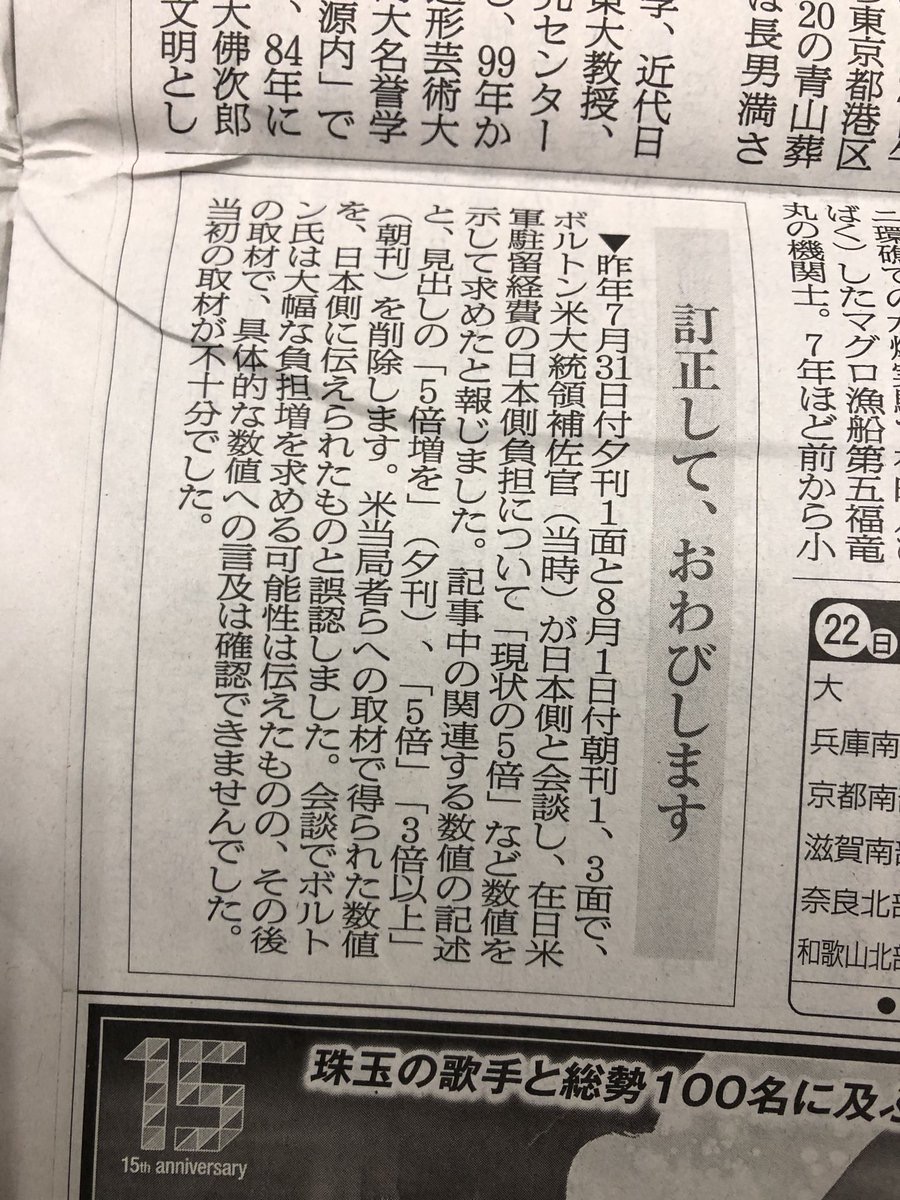 は長男満さ
20の青山葬
東京都港区
学、近代日
東大教授、
元センター
、99年か
造形芸術大
大名誉学
源内」で
、84年に
大佛次郎
文明とし
ばく）したマグロ漁船第五福竜
丸の機関士。7年ほど前から小
訂正して、おわびします
▼昨年7月31日付夕刊1面と8月1日付朝刊1、3面で、
ボルトン米大統領補佐官（当時）が日本側と会談し、在日米
軍駐留経費の日本側負担について「現状の5倍」など数値を
示して求めたと報じました。記事中の関連する数値の記述
と、見出しの「5倍増を」（夕刊）、「5倍」「3倍以上」
（朝刊）を削除します。米当局者らへの取材で得られた数値
を、日本側に伝えられたものと誤認しました。会談でボルト
ン氏は大幅な負担増を求める可能性は伝えたものの、その後
の取材で、具体的な数値への言及は確認できませんでした。
当初の取材が不十分でした。
22日
大
兵庫南
京都南
滋賀南部
奈良北部
和歌山北部
15
15th anniversary
珠玉の歌手と総勢100名に及ぶ